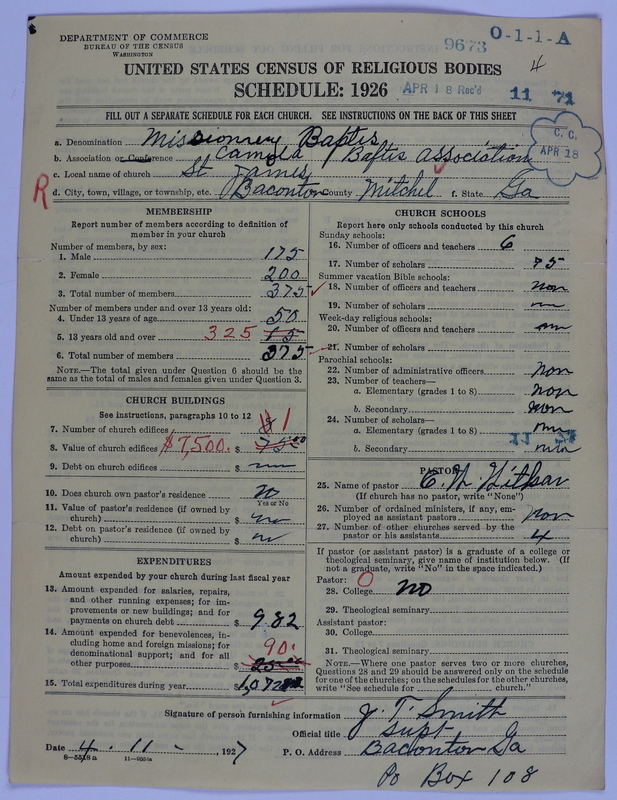 DEPARTMENT OF COMMERCE
BUREAU OF THE CENSUS
WASHINGTON
9673 O-1-1-A
UNITED STATES CENSUS OF RELIGIOUS BODIES 4
SCHEDULE: 1926 APR 18 Rec'd 11 71
FILL OUT A SEPARATE SCHEDULE FOR EACH CHURCH. SEE INSTRUCTIONS ON THE BACK OF THIS SHEET
C. C.
APR 18
a. Denomination Missionery Baptis
b. Association or Conference Camola Baptis association
c. Local name of church St. James
R
d. City, town, village, or township, etc. Baconton County Mitchel f. State Ga
MEMBERSHIP
Report number of members according to definition of
member in your church
Number of members, by sex:
1. Male 175
2. Female 200
3. Total number of members 375
Number of members under and over 13 years old:
4. Under 13 years of age 50
5. 13 years old and over 325 15
6. Total number of members 375
NOTE.—The total given under Question 6 should be
the same as the total of males and females given under Question 3.
CHURCH BUILDINGS
See instructions, paragraphs 10 to 12
7. Number of church edifices 1
8. Value of church edifices $7,500. $ 75.00
9. Debt on church edifices $
10. Does church own pastor's residence no
Yes or No
11. Value of pastor's residence (if owned by
church) $ no
12. Debt on pastor's residence (if owned by
church) $
EXPENDITURES
Amount expended by your church during last fiscal year
13. Amount expended for salaries, repairs,
and other running expenses; for im-
provements or new buildings; and for
payments on church debt $ 982
14. Amount expended for benevolences, in-
cluding home and foreign missions; for
denominational support; and for all
other purposes 90. 25.00
15. Total expenditures during year $1,072
CHURCH SCHOOLS
Report here only schools conducted by this church
Sunday schools:
16. Number of officers and teachers 6
17. Number of scholars 75
Summer vacation Bible schools:
18. Number of officers and teachers non
19. Number of scholars
Week-day religious schools:
20. Number of officers and teachers
21. Number of scholars
Parochial schools:
22. Number of administrative officers non
23. Number of teachers—
a. Elementary (grades 1 to 8) non
b. Secondary non
24. Number of scholars—
a. Elementary (grades 1 to 8)
b. Secondary
PASTOR
25. Name of pastor
(If church has no pastor, write "None")
26. Number of ordained ministers, if any, em-
ployed as assistant pastors non
27. Number of other churches served by the
pastor or his assistants 4
If pastor (or assistant pastor) is a graduate of a college or
theological seminary, give name of institution below. (If
not a graduate, write "No" in the space indicated.)
Pastor: 0
28. College no
29. Theological seminary
Assistant pastor:
30. College
31. Theological seminary
NOTE.—Where one pastor serves two or more churches,
Questions 28 and 29 should be answered only on the schedule
for one of the churches; on the schedules for the other churches,
write "See schedule for church."
Signature of person furnishing information J. T. Smith
Official title Supt
Date 4 - 11 - , 1927 P. O. Address Baconton Ga
8-5518a 11-9554a
Po Box 108